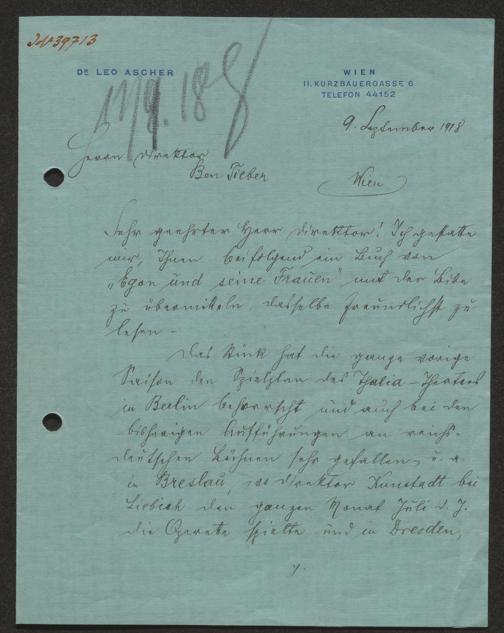 IN 39713
DR LEO ASCHER
WIEN
II. KURZBAUERGASSE 6
TELEFON 44152
11/9. 18
9. September 1918
Herrn Direktor
Ben Tieber
Wien
Sehr geehrter Herr Direktor! Ich gestatte
mir, Ihnen beifolgend ein Buch von
„Egon und seine Frauen" mit der Bitte
zu übermitteln, dasselbe freundlichst zu
lesen –
Das Stück hat die ganze vorige
Saison den Spielplan des Thalia-Theaters
in Berlin beherrscht und auch bei den
bisherigen Aufführungen an reichs-
deutschen Bühnen sehr gefallen, u. a.
in Breslau, wo Direktor Kunstadt bei
Liebich den ganzen Monat Juli d. J.
die Operette spielte und in Dresden,